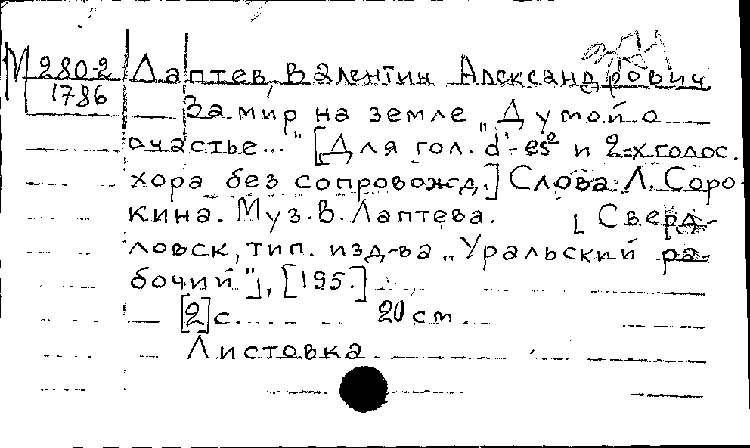 М 280-2 Лаптев, Валентин Александрович
1786
За мир на земле „Думой о
счастье..." [Для гол. d'-es² и 2-х голос.
хора без сопровожд.] Слова Л. Соро-
кина. Муз. В. Лаптева. [Сверд-
ловск, тип. изд-ва „Уральский ра-
бочий"], [195.]
[2] с. 20 см.
Листовка